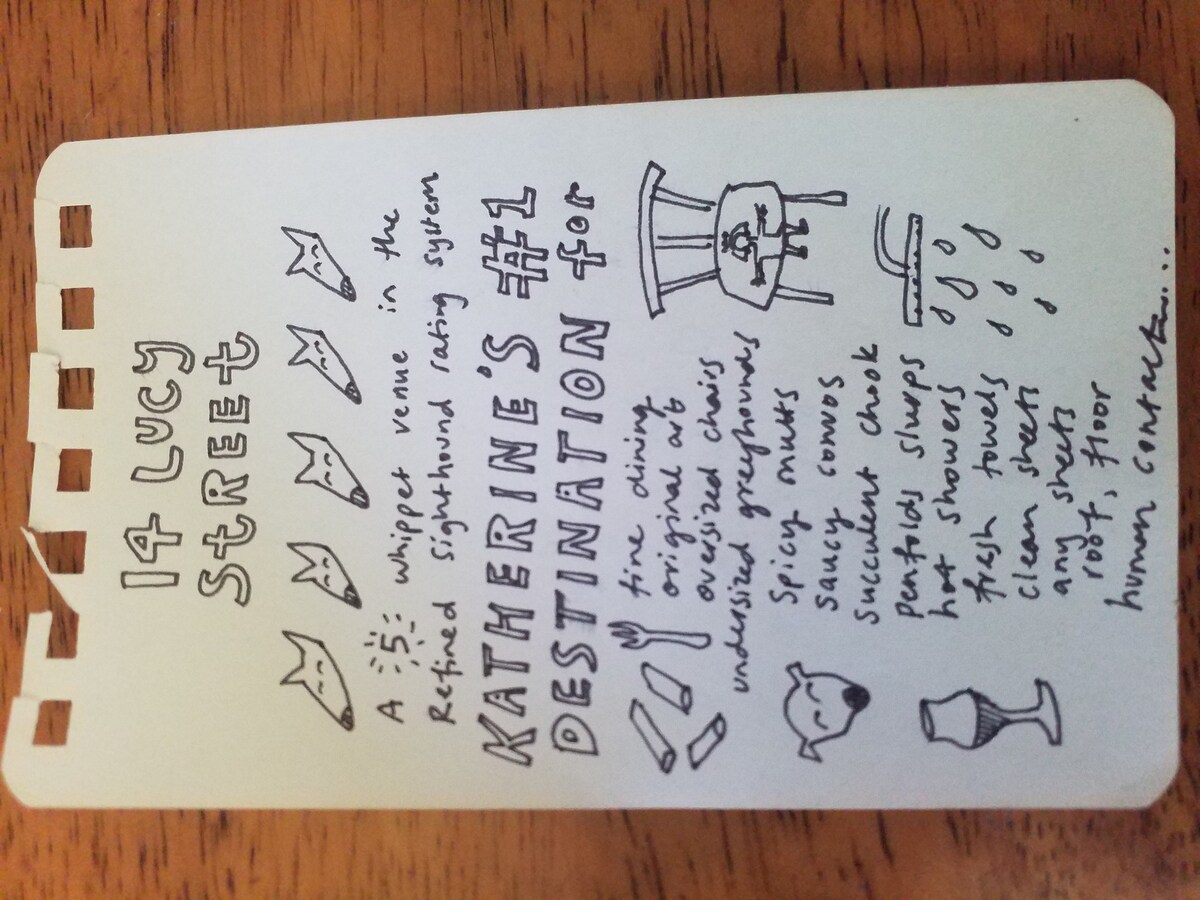 14 LUCY
StREEt
A 5 whippet venue in the
Refined Sighthound rating system
KATHERINE'S #1
DESTINATION for
fine dining
original art
oversized chairs
undersized greyhounds
Spicy mutts
saucy convos
succulent chook
penfolds slurps
hot showers
fresh towels
clean sheets
any sheets
roof, floor
human contact.....